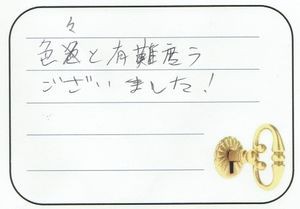 色々と有難度う
ございました!